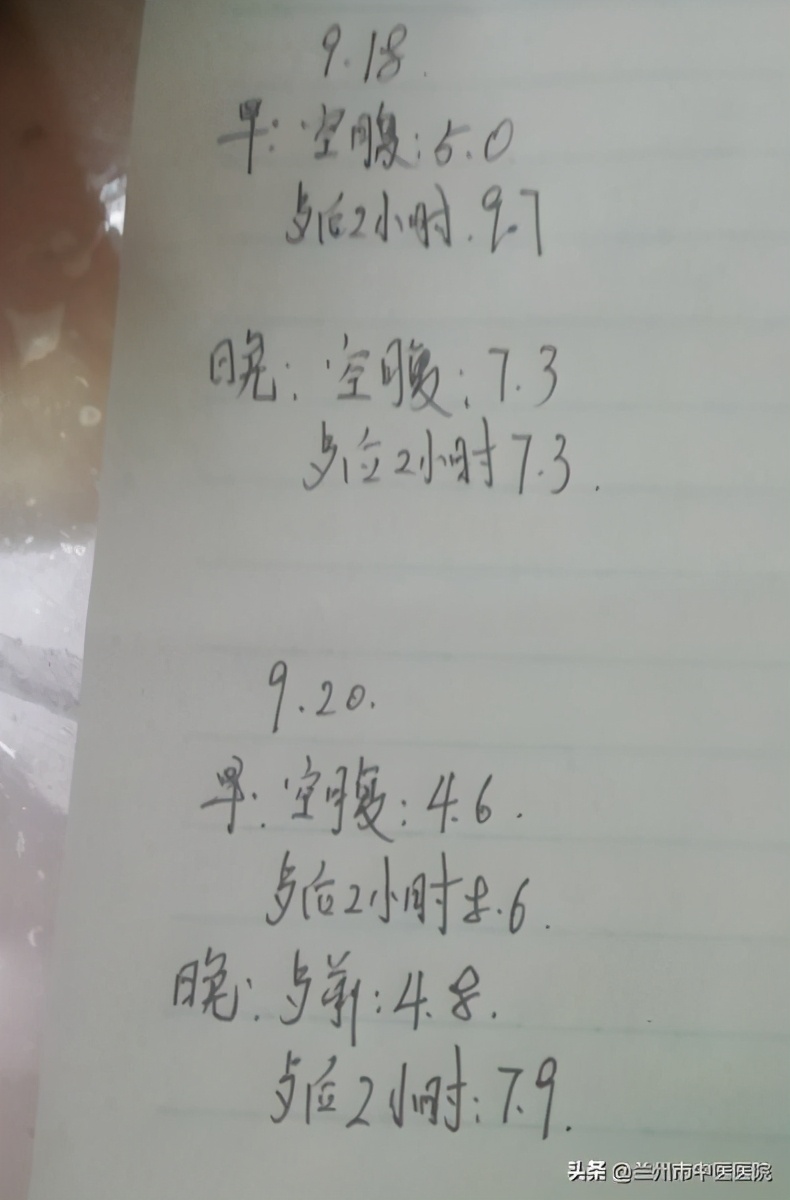 9.18.
早：空腹：5.0
歺后2小时.9.7
晚：空腹：7.3
歺后2小时7.3.
9.20.
早：空腹：4.6.
歺后2小时8.6.
晚：歺前：4.8.
歺后2小时：7.9.
头条 @兰州市中医医院